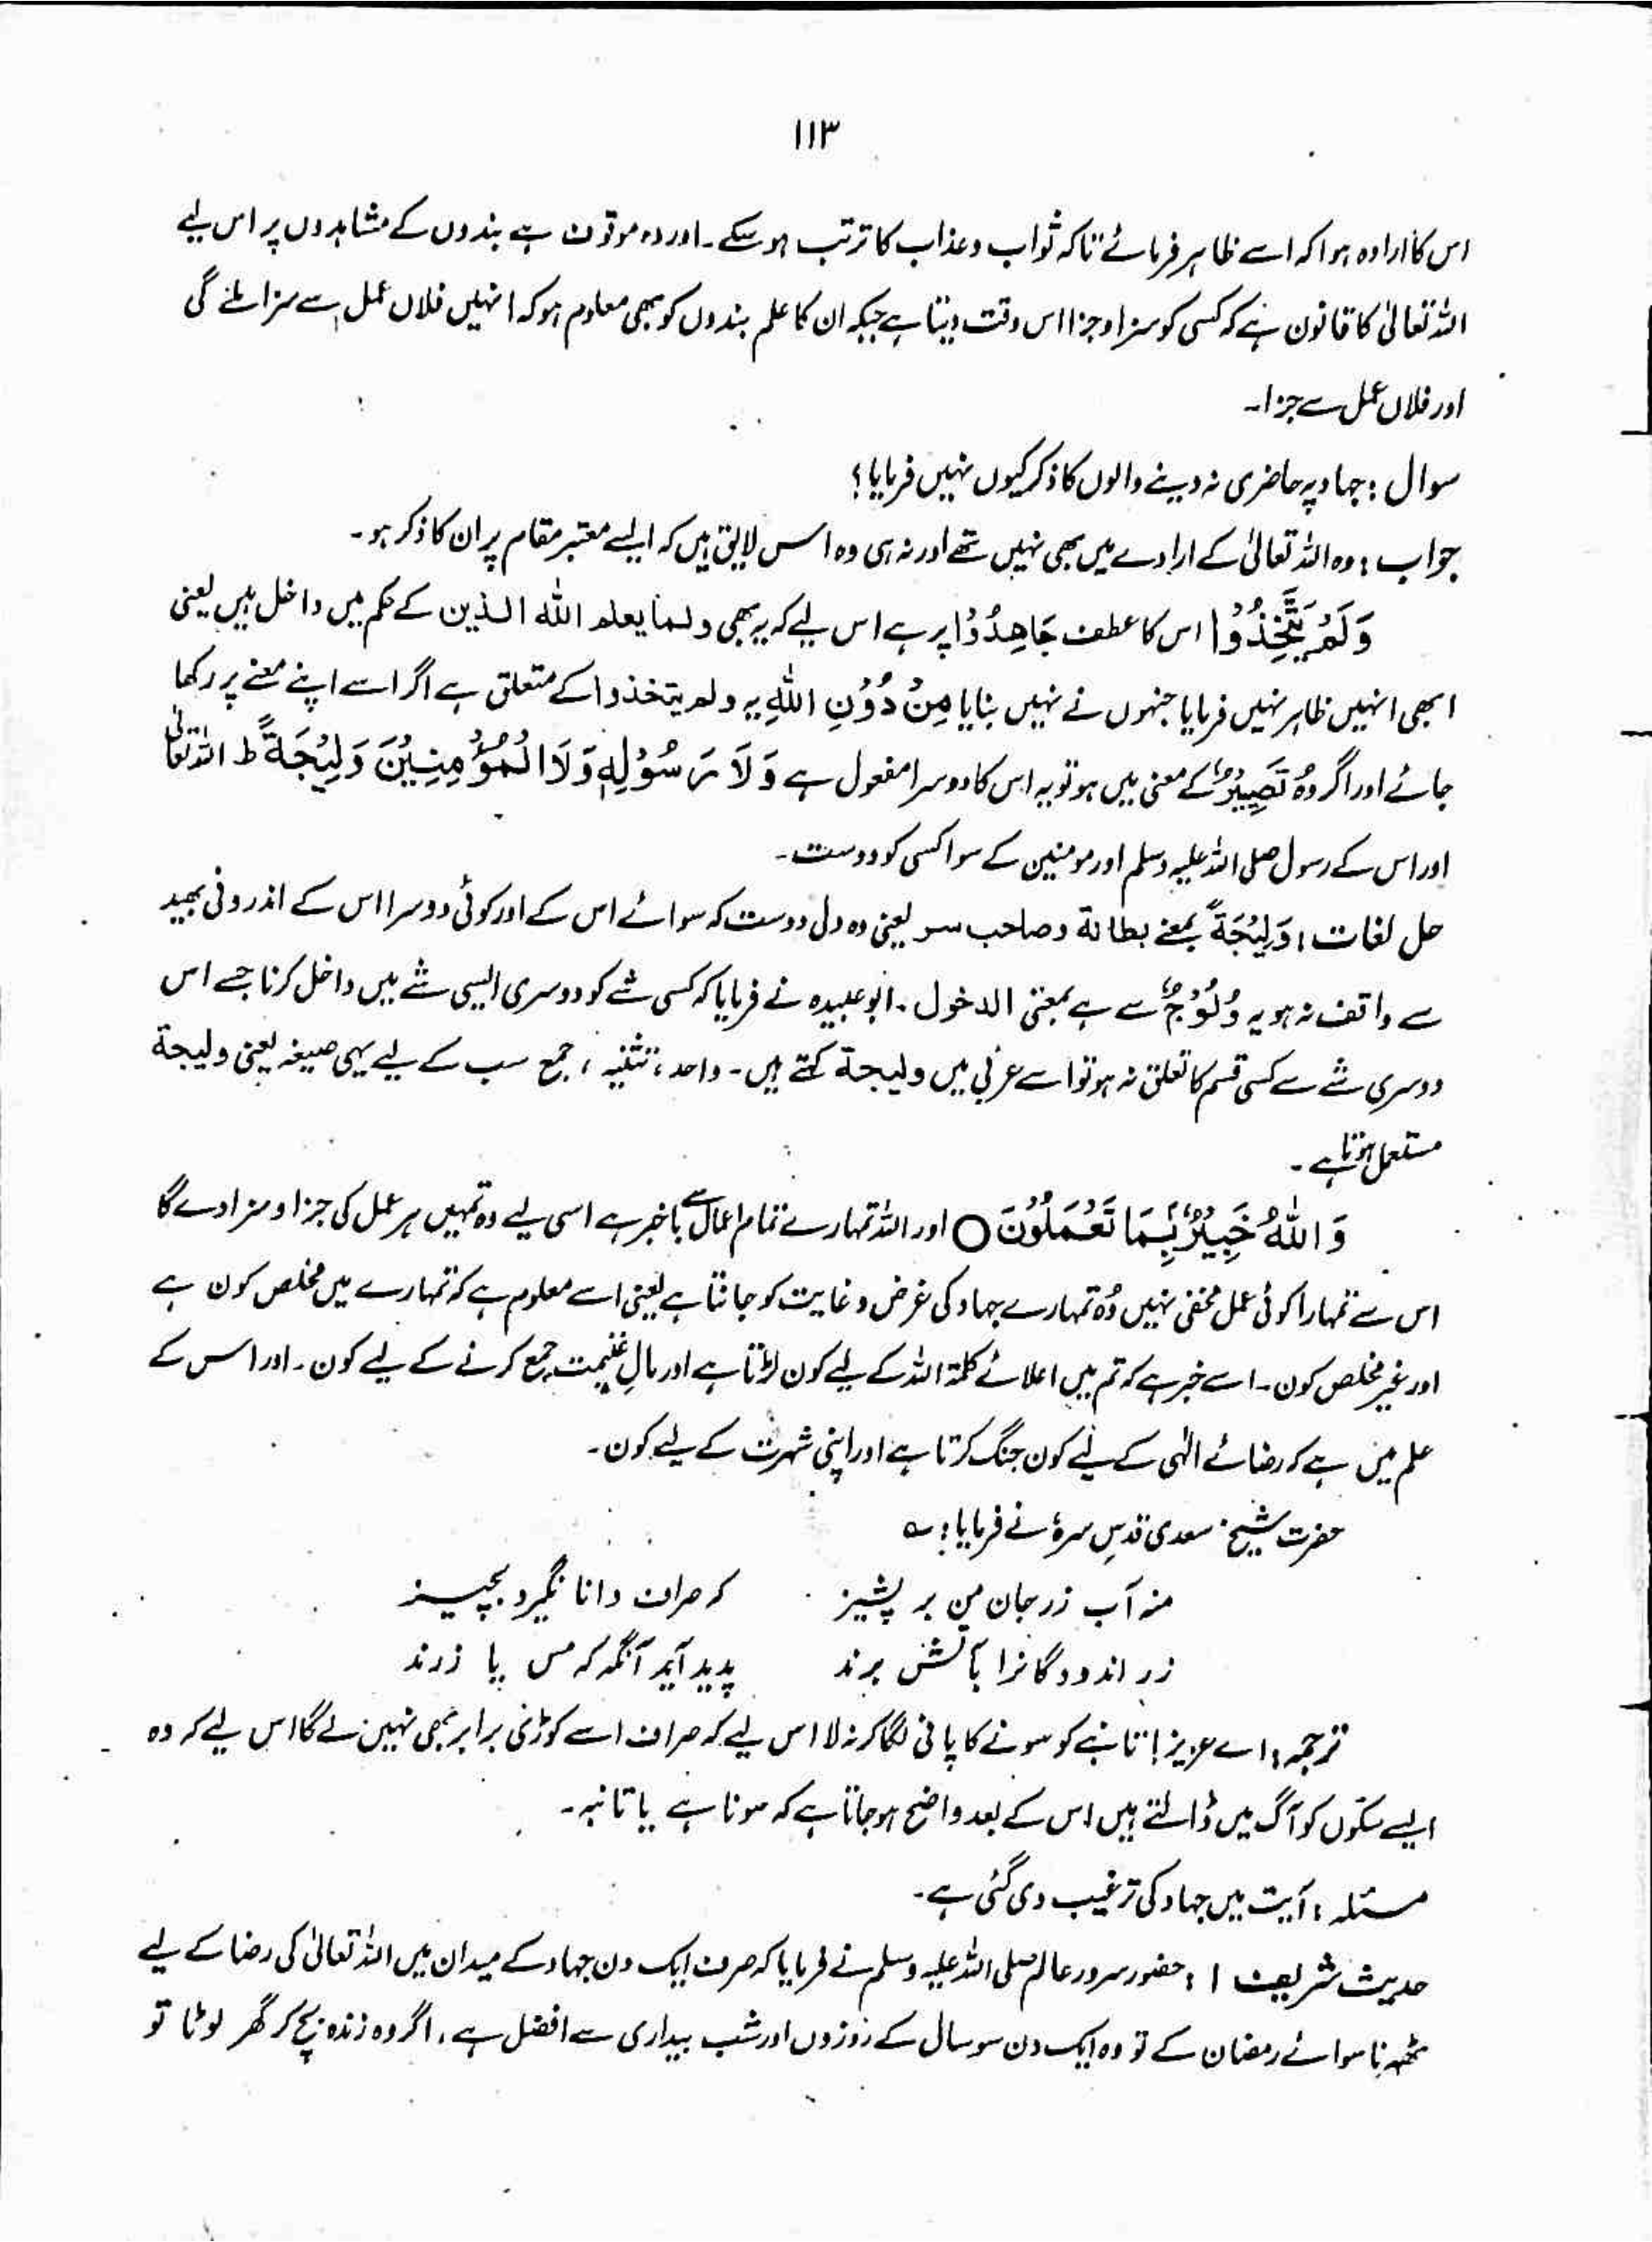 ۱۱۳
اس کا ارادہ ہوا کہ اسے ظاہر فرمائے تاکہ ثواب و عذاب کا ترتب ہو سکے۔ اور وہ موقوف ہے بندوں کے مشاہدوں پر اس لیے
اللہ تعالیٰ کا قانون ہے کہ کسی کو سزا و جزا اس وقت دیتا ہے جبکہ ان کا علم بندوں کو بھی معلوم ہو کہ انہیں فلاں عمل سے سزا ملے گی
اور فلاں عمل سے جزا۔
سوال : جہاد پر حاضری نہ دینے والوں کا ذکر کیوں نہیں فرمایا؟
جواب : وہ اللہ تعالیٰ کے ارادے میں بھی نہیں تھے اور نہ ہی وہ اس لایق ہیں کہ ایسے معتبر مقام پر ان کا ذکر ہو۔
وَلَمْ يَتَّخِذُوْا اس کا عطف جَاهِدُوْا پر ہے اس لیے کہ یہ بھی ولما یعلم اللہ الذین کے حکم میں داخل ہیں یعنی
ابھی انہیں ظاہر نہیں فرمایا جنہوں نے نہیں بنایا مِنْ دُوْنِ اللهِ یہ ولم یتخذوا کے متعلق ہے اگر اسے اپنے معنے پر رکھا
جائے اور اگر وہُ تَصِيِيْرٌ کے معنی میں ہو تو یہ اس کا دوسرا مفعول ہے وَلَا رَسُوْلِهٖ وَلَا الْمُؤْمِنِيْنَ وَلِيْجَةً ط اللہ تعالیٰ
اور اس کے رسول صلی اللہ علیہ وسلم اور مومنین کے سوا کسی کو دوست۔
حل لغات : وَلِيْجَةً بمعنے بطانة و صاحب سر یعنی وہ دلی دوست کہ سوائے اس کے اور کوئی دوسرا اس کے اندرونی بھید
سے واقف نہ ہو یہ وُلُوْجٌ سے ہے بمعنی الدخول۔ ابو عبیدہ نے فرمایا کہ کسی شے کو دوسری ایسی شے میں داخل کرنا جسے اس
دوسری شے سے کسی قسم کا تعلق نہ ہو تو اسے عربی میں ولیجة کہتے ہیں۔ واحد، تثنیہ، جمع سب کے لیے یہی صیغہ یعنی ولیجة
مستعمل ہوتا ہے۔
وَاللهُ خَبِيْرٌۢ بِمَا تَعْمَلُوْنَ ○ اور اللہ تمہارے تمام اعمال سے باخبر ہے اسی لیے وہ تمہیں ہر عمل کی جزا و سزا دے گا
اس سے تمہارا کوئی عمل مخفی نہیں وُہ تمہارے جہاد کی غرض و غایت کو جانتا ہے یعنی اسے معلوم ہے کہ تمہارے میں مخلص کون ہے
اور غیر مخلص کون۔ اسے خبر ہے کہ تم میں اعلائے کلمۃ اللہ کے لیے کون لڑتا ہے اور مالِ غنیمت جمع کرنے کے لیے کون۔ اور اس کے
علم میں ہے کہ رضائے الٰہی کے لیے کون جنگ کرتا ہے اور اپنی شہرت کے لیے کون۔
حضرت شیخ سعدی قدس سرہٗ نے فرمایا : ؎
منہ آب زر جان من بر پشیز کہ صراف دانا نگیرد بچیسز
زر اندودگانرا بآتش برند پدید آید آنگہ کہ مس یا زرند
ترجمہ : اے عزیز! تانبے کو سونے کا پانی لگا کر نہ لا اس لیے کہ صراف اسے کوڑی برابر بھی نہیں لے گا اس لیے کہ وہ
ایسے سکّوں کو آگ میں ڈالتے ہیں اس کے بعد واضح ہو جاتا ہے کہ سونا ہے یا تانبہ۔
مسئلہ : آیت میں جہاد کی ترغیب دی گئی ہے۔
حدیث شریف ۱ : حضور سرور عالم صلی اللہ علیہ وسلم نے فرمایا کہ صرف ایک دن جہاد کے میدان میں اللہ تعالیٰ کی رضا کے لیے
ٹھہرنا سوائے رمضان کے تو وہ ایک دن سو سال کے روزوں اور شب بیداری سے افضل ہے، اگر وہ زندہ بچ کر گھر لوٹا تو